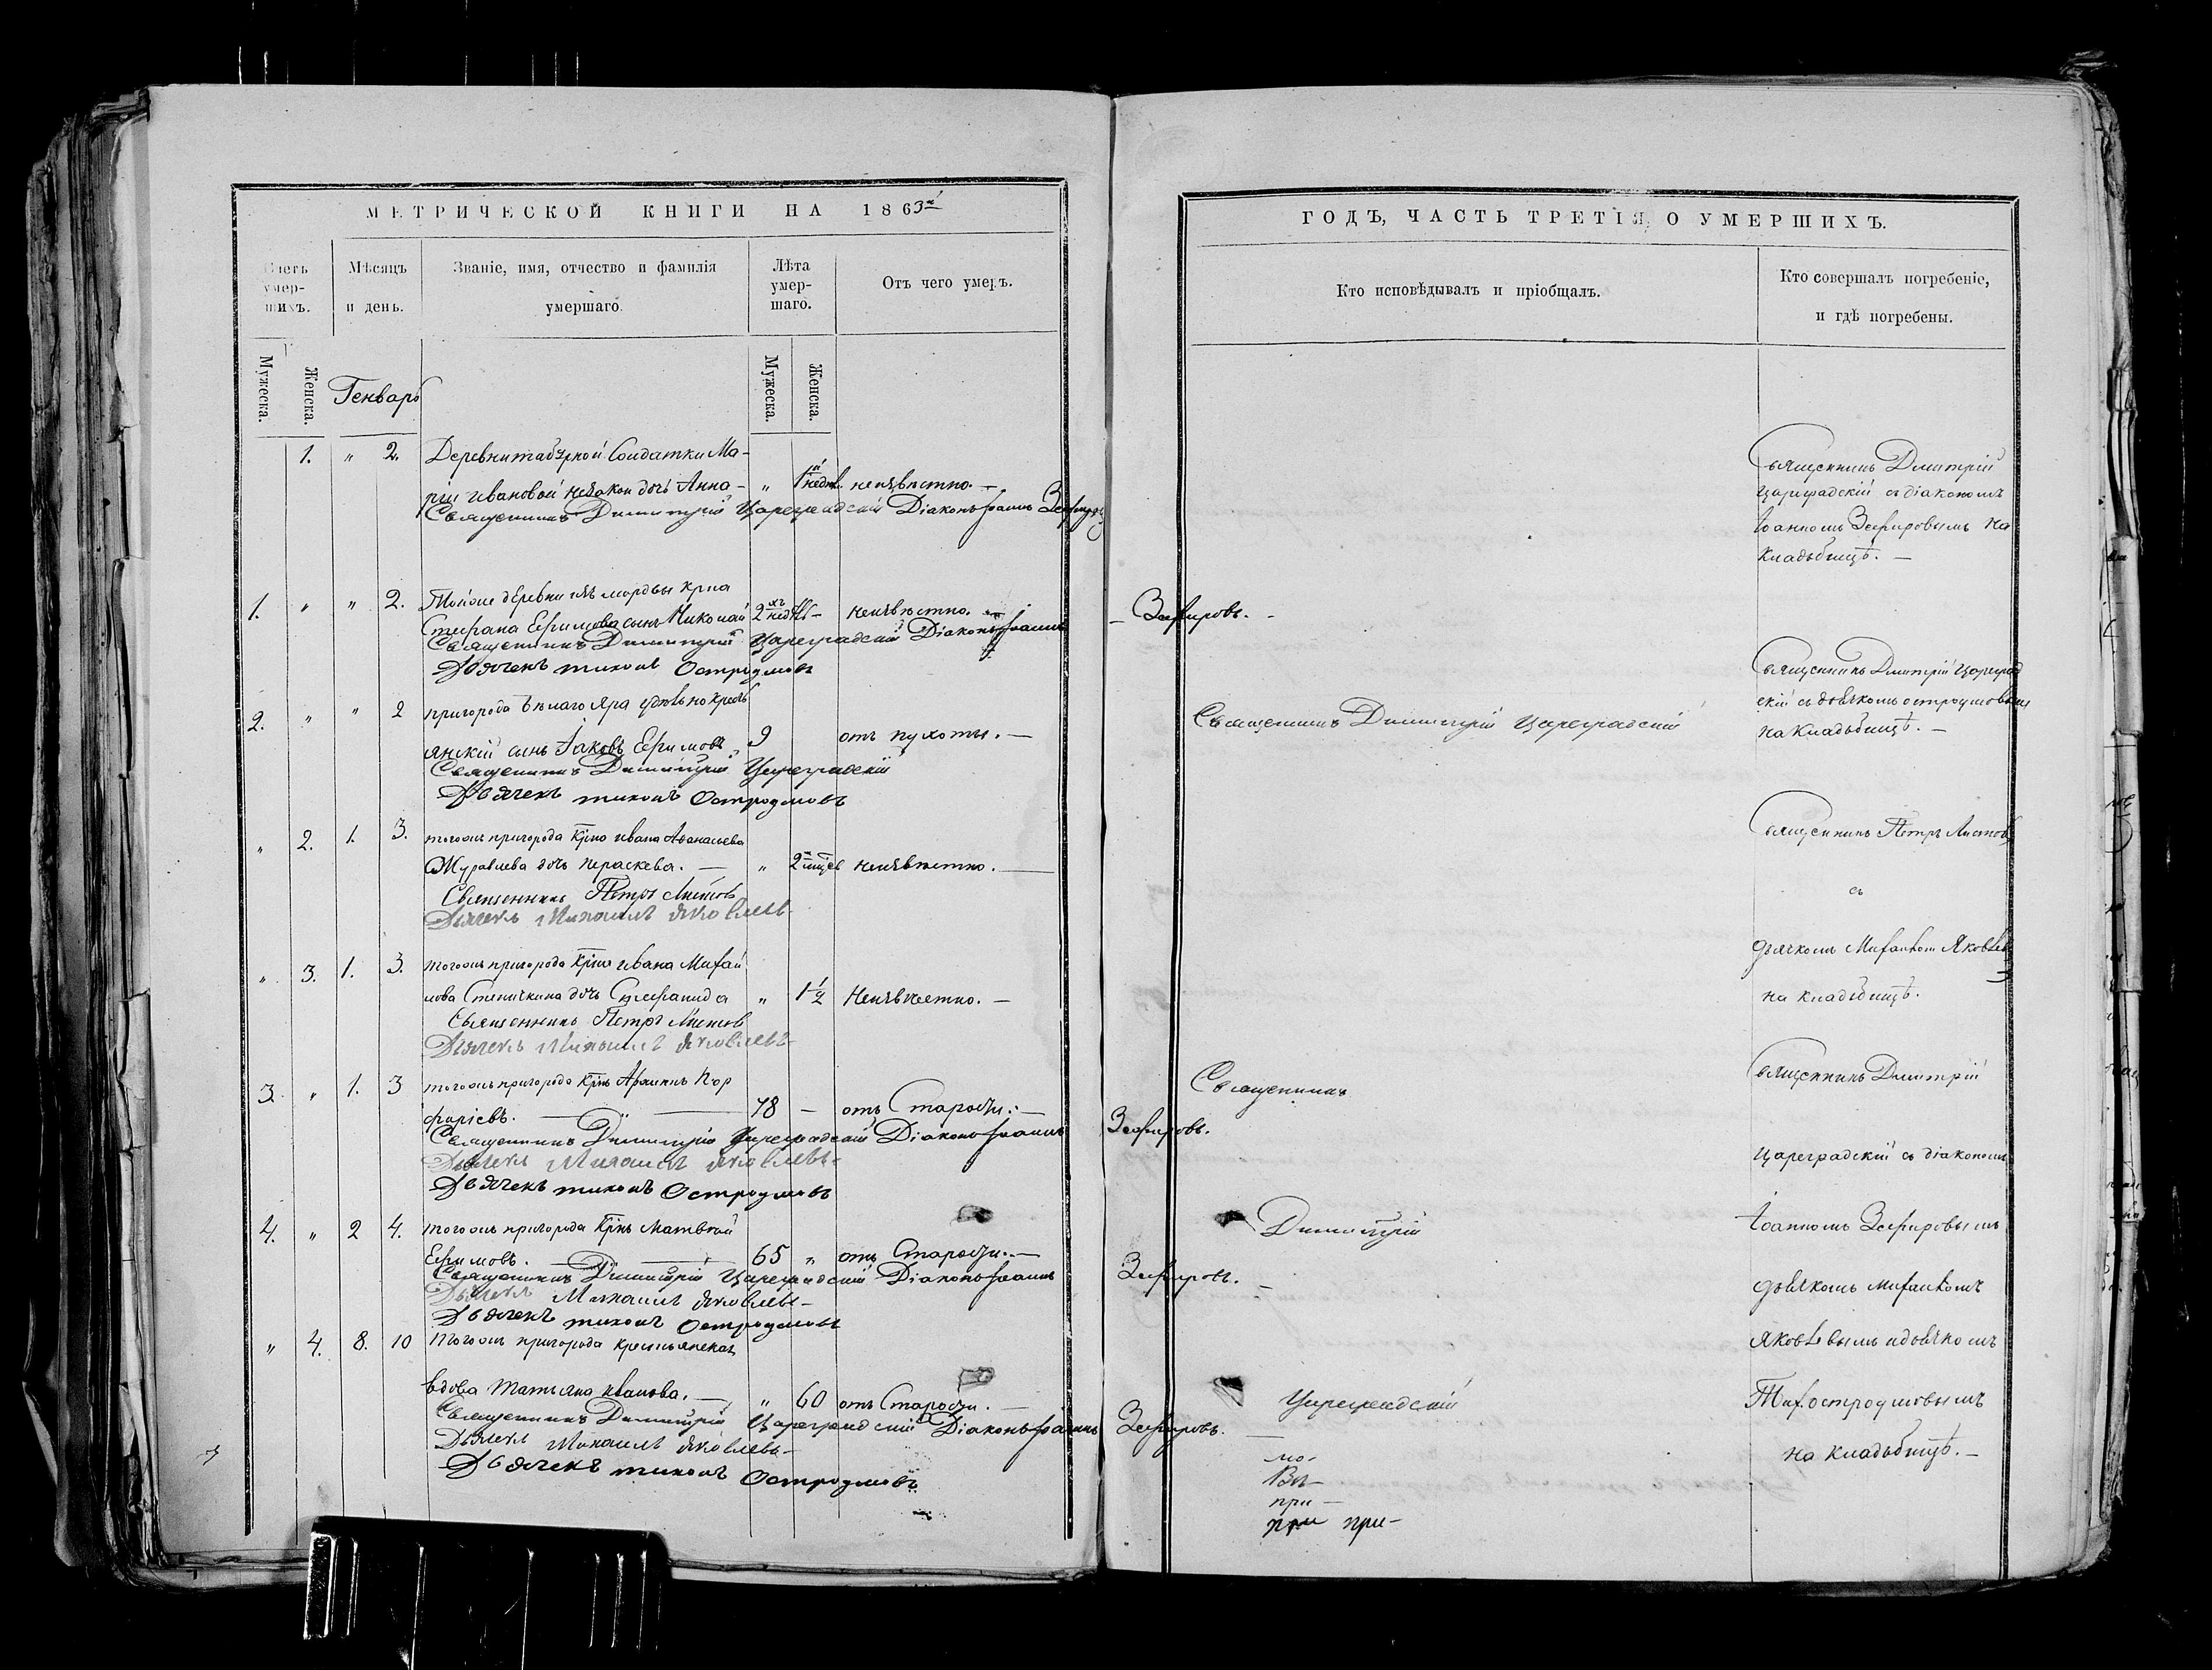 МЕТРИЧЕСКОЙ КНИГИ НА 1863й
Счетъ умер-шихъ.
Мѣсяцъ и день.
Званіе, имя, отчество и фамилія умершаго.
Лѣта умер-шаго.
Отъ чего умеръ.
Мужеска.
Женска.
Генварь
Мужеска.
Женска.
1. " 2. Деревни Солдатки Ма-
ріи Ивановой незакон дочь Анна- " 1 неизвѣстно. —
Священникъ Димитрій Цареградскій Діаконъ Іоаннъ Зефировъ
1. " " 2. Тойже деревни изъ мордвы крна
Стефана Ефимова сынъ Николай 2 нед неизвѣстно. —
Священникъ Димитрій Цареградскій Діаконъ Іоаннъ
Дьячекъ тихонъ Остроумовъ
2. " " 2 пригорода Бѣлаго Яра удѣльно кресть
янскій сынъ Іаковъ Ефимовъ. 9 отъ пухоты. —
Священникъ Димитрій Цареградскій
Дьячекъ тихонъ Остроумовъ
" 2. 1. 3. тогожъ пригорода Крна ивана Аѳанасьева
Журавлева дочь Пераскева. — " 2 мѣсц неизвѣстно. —
Священникъ Петръ Листовъ
Дьячекъ Михаилъ Яковлевъ-
" 3. 1. 3. тогожъ пригорода Крна ивана Михаи
лова дочь Стефанида " 1 1/2 Неизвѣстно. —
Священникъ Петръ Листовъ
Дьячекъ Михаилъ Яковлевъ-
3. " 1. 3 тогожъ пригорода Крнъ Пор
фиріевъ. — " — 78 — отъ Старости. —
Священникъ Димитрій Цареградскій Діаконъ Іоаннъ
Дьячекъ Михаилъ Яковлевъ-
Дьячекъ тихонъ Остроумовъ
4. " 2 4. тогожъ пригорода Крнъ Матвѣй
Ефимовъ. — 65 " отъ Старости. —
Священникъ Димитрій Цареградскій Діаконъ Іоаннъ
Дьячекъ Михаилъ Яковлевъ-
Дьячекъ тихонъ Остроумовъ
" 4. 8. 10 Тогожъ пригорода крестьянская
вдова Татьяна Иванова. — " 60 отъ Старости. —
Священникъ Димитрій Цареградскій Діаконъ Іоаннъ
Дьячекъ Михаилъ Яковлевъ-
Дьячекъ тихонъ Остроумовъ
ГОДЪ, ЧАСТЬ ТРЕТІЯ, О УМЕРШИХЪ.
Кто исповѣдывалъ и пріобщалъ.
Кто совершалъ погребеніе,
и гдѣ погребены.
Священникъ Дмитрій
Цареградскій съ діакономъ
Іоанномъ Зефировымъ на
кладьбищѣ. —
— Зефировъ. -
Священникъ Дмитрій Цареград
скій съ дьячкомъ остроумовымъ
на кладьбищѣ. —
Священникъ Димитрій Цареградскій
Священникъ Петръ Листовъ
съ
дьячкомъ Михаиломъ Яковлев
на кладьбищѣ.
Священникъ
Священникъ Дмитрій
Зефировъ.
Цареградскій съ діакономъ
Димитрій
Іоанномъ Зефировымъ
Зефировъ. —
дьячкомъ Михаиломъ
Яковлевымъ и дьячкомъ
Цареградскій
Тих. остроумовымъ
Зефировъ.
на кладьбищѣ. —
мо-
Въ-
при —
при при-